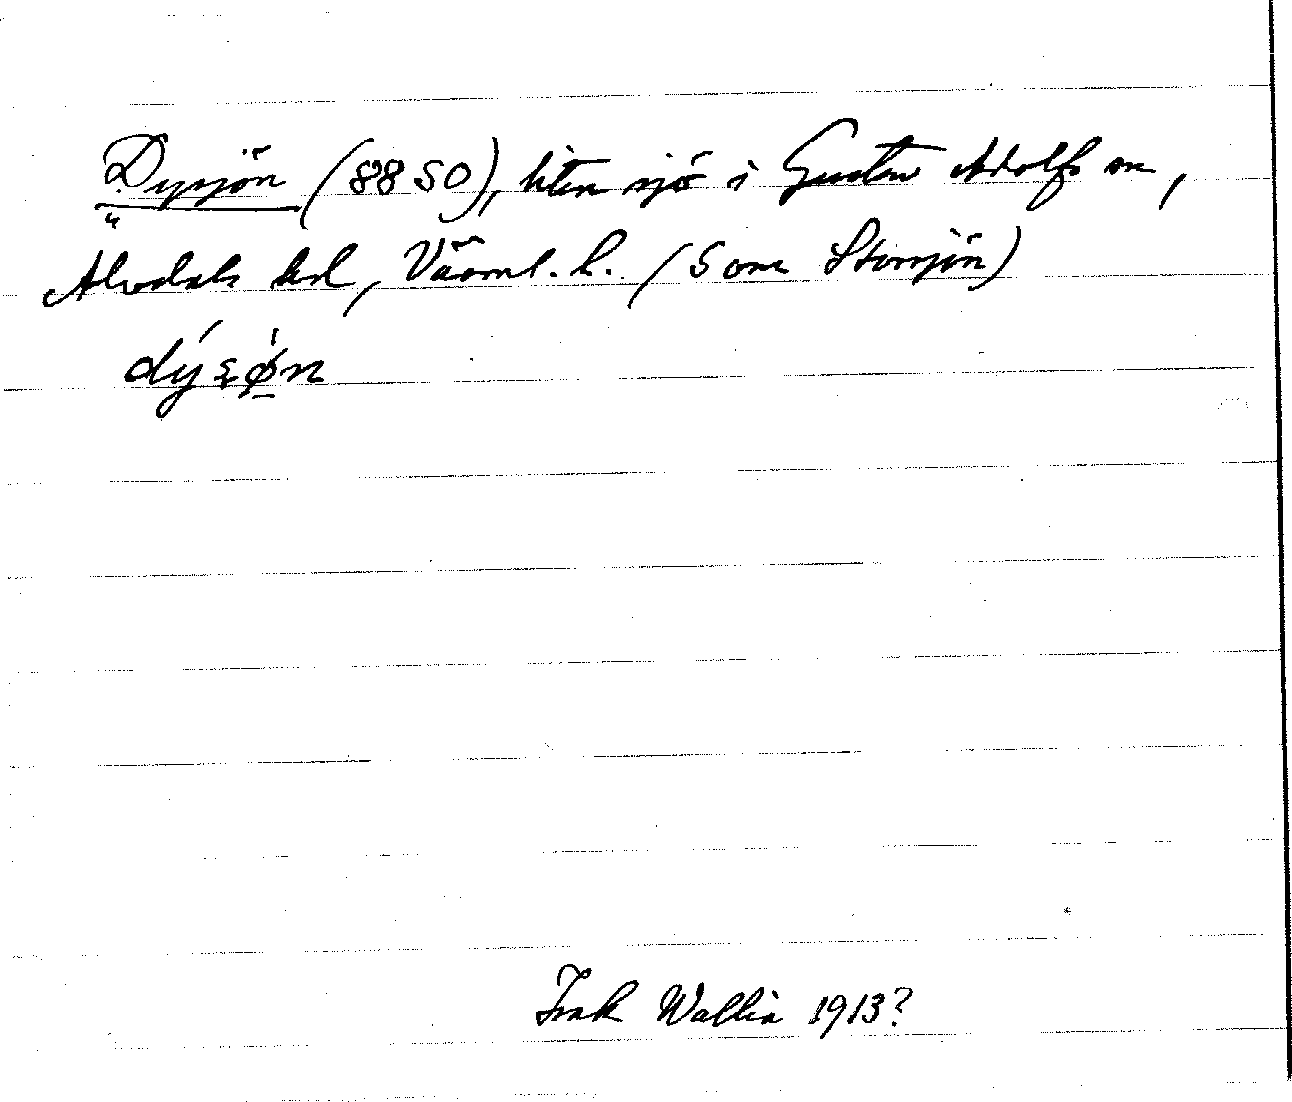 Dysjön (88 SO), liten sjö i Gustav Adolfs sn,
Älvdals hd, Värml. l. (Som Storsjön)
dýsø̀n
Isak Wallin 1913?